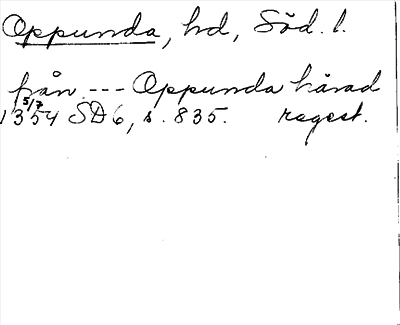 Oppunda, hd, Söd. l.
från --- Oppunda härad
5/7
1354 SD 6, s. 835. regest.